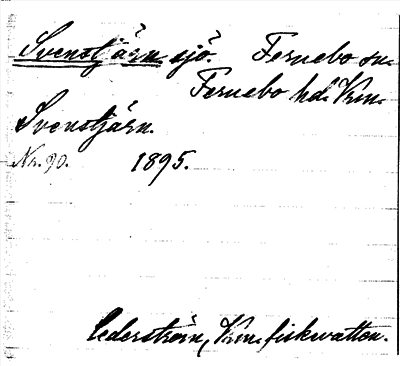 Svenstjärn sjö. Fernebo sn.
Fernebo hd. Vrm.
Svenstjärn.
Nr. 90. 1895.
Cederström, Vrm. fiskvatten.